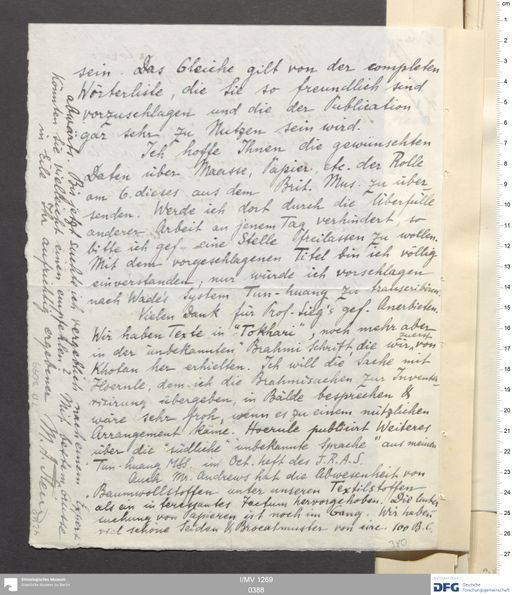 sein. Das Gleiche gilt von der completen
Wörterliste, die Sie so freundlich sind
vorzuschlagen und die der Publication
gar sehr zu Nutzen sein wird.
Ich hoffe Ihnen die gewünschten
Daten über Maasse, Papier, etc. der Rolle
am 6. dieses aus dem Brit. Mus. zu über
senden. Werde ich dort durch die Überfülle
anderer Arbeit an jenem Tag verhindert so
bitte ich gef. eine Stelle freilassen zu wollen.
Mit dem vorgeschlagenen Titel bin ich völlig
einverstanden, nur würde ich vorschlagen
nach Wade's System Tun-huang zu transcribiren.
Vielen Dank für Prof. Sieg's gef. Anerbieten.
Wir haben Texte in "Tokhari", noch mehr aber
in der unbekannten Brahmi Schrift, die wir zuerst von
Khotan her erhielten. Ich will die Sache mit
Hoernle, dem ich die Brahmisachen zur Inventa
risirung übergeben, in Bälde besprechen &
wäre sehr froh, wenn es zu einem nützlichen
Arrangement käme. Hoernle publicirt Weiteres
über die "südliche" unbekannte Sprache aus meinen
Tun-huang MSS. im Oct. heft des J.R.A.S.
Auch Mr. Andrews hat die Abwesenheit von
Baumwollstoffen unter unseren Textilstoffen
als ein interessantes Factum hervorgehoben. Die Unter
suchung von Papieren ist noch im Gang. Wir haben
viel schöne Seiden & Brocatmuster von circ. 100 B.C.
abwärts. Bis jetzt suchte ich vergeblich nach einem Expert
Könnten Sie vielleicht einen empfehlen? Mit bestem Grusse
in Eile Ihr aufrichtig ergebener M. A. Stein
380
Ethnologisches Museum
Staatliche Museen zu Berlin
I/MV 1269
0388
DFG
Deutsche
Forschungsgemeinschaft